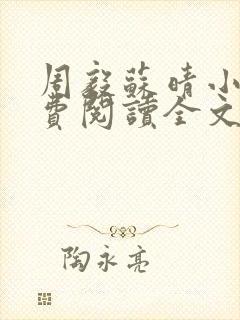 周毅蘇晴小
費閱讀全文
陶永亮